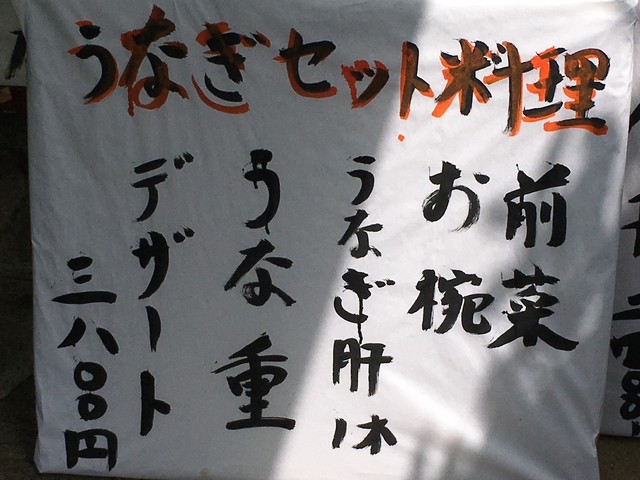 うなぎセット料理
前菜
お椀
うなぎ肝焼
うな重
デザート
三八〇〇円